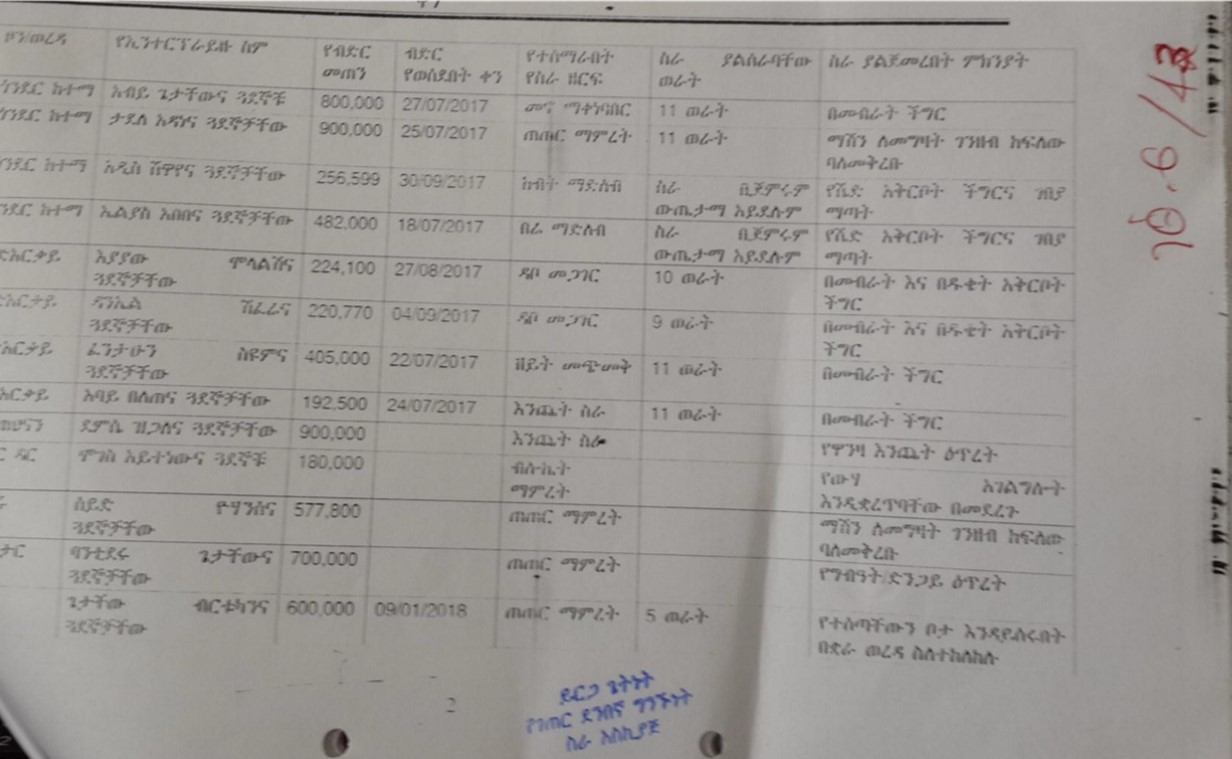 ዞን/ወረዳ የኢንተርፕራይዙ ስም የብድር መጠን ብድር የወሰደበት ቀን የተሰማራበት የስራ ዘርፍ ስራ ያልሰራባቸው ወራት ስራ ያልጀመረበት ምክንያት
ጎንደር ከተማ አብይ ጌታቸውና ጓደኞቹ 800,000 27/07/2017 መኖ ማቀነባበር 11 ወራት በመብራት ችግር
ጎንደር ከተማ ታደለ አዳነና ጓደኞቻቸው 900,000 25/07/2017 ጠጠር ማምረት 11 ወራት ማሽን ለመግዛት ገንዘብ ከፍለው ባለመቅረቡ
ጎንደር ከተማ አዲስ ሽዋየና ጓደኞቻቸው 256,599 30/09/2017 ከብት ማድለብ ስራ ቢጀምሩም ውጤታማ አይደሉም የሼድ አቅርቦት ችግርና ገበያ ማጣት
ንደር ከተማ ኤልያስ አበበና ጓደኞቻቸው 482,000 18/07/2017 በሬ ማድለብ ስራ ቢጀምሩም ውጤታማ አይደሉም የሼድ አቅርቦት ችግርና ገበያ ማጣት
አርቃይ እያያው ሞላልኝና ጓደኞቻቸው 224,100 27/08/2017 ዳቦ መጋገር 10 ወራት በመብራት እና በዱቄት አቅርቦት ችግር
አርቃይ ዳንኤል ሽፈራና ጓደኞቻቸው 220,770 04/09/2017 ዳቦ መጋገር 9 ወራት በመብራት እና በዱቄት አቅርቦት ችግር
አርቃይ ፈንታሁን ስዩምና ጓደኞቻቸው 405,000 22/07/2017 ዘይት መጭመቅ 11 ወራት በመብራት ችግር
አርቃይ አባይ በለጠና ጓደኞቻቸው 192,500 24/07/2017 እንጨት ስራ 11 ወራት በመብራት ችግር
ደምሴ ዝጋለና ጓደኞቻቸው 900,000 እንጨት ስራ የዋንዛ እንጨት ዕጥረት
ር ዳር ሞገስ አይተነውና ጓደኞቹ 180,000 ብሎኬት ማምረት የውሃ አገልግሎት እንዲቋረጥባቸው በመደረጉ
ሰይድ ዮሃንስና ጓደኞቻቸው 577,800 ጠጠር ማምረት ማሽን ለመግዛት ገንዘብ ከፍለው ባለመቅረቡ
ባንቲደሩ ጌታቸውና ጓደኞቻቸው 700,000 ጠጠር ማምረት የግብዓት/ድንጋይ ዕጥረት
ጌታቸው ብርቱካንና ጓደኞቻቸው 600,000 09/01/2018 ጠጠር ማምረት 5 ወራት የተሰጣቸውን ቦታ እንዳይሰሩበት በቋራ ወረዳ ስለተከለከሉ
2
ይርጋ ጌትነት
የገጠር ደንበኛ ግንኙነት
ስራ አስኪያጅ